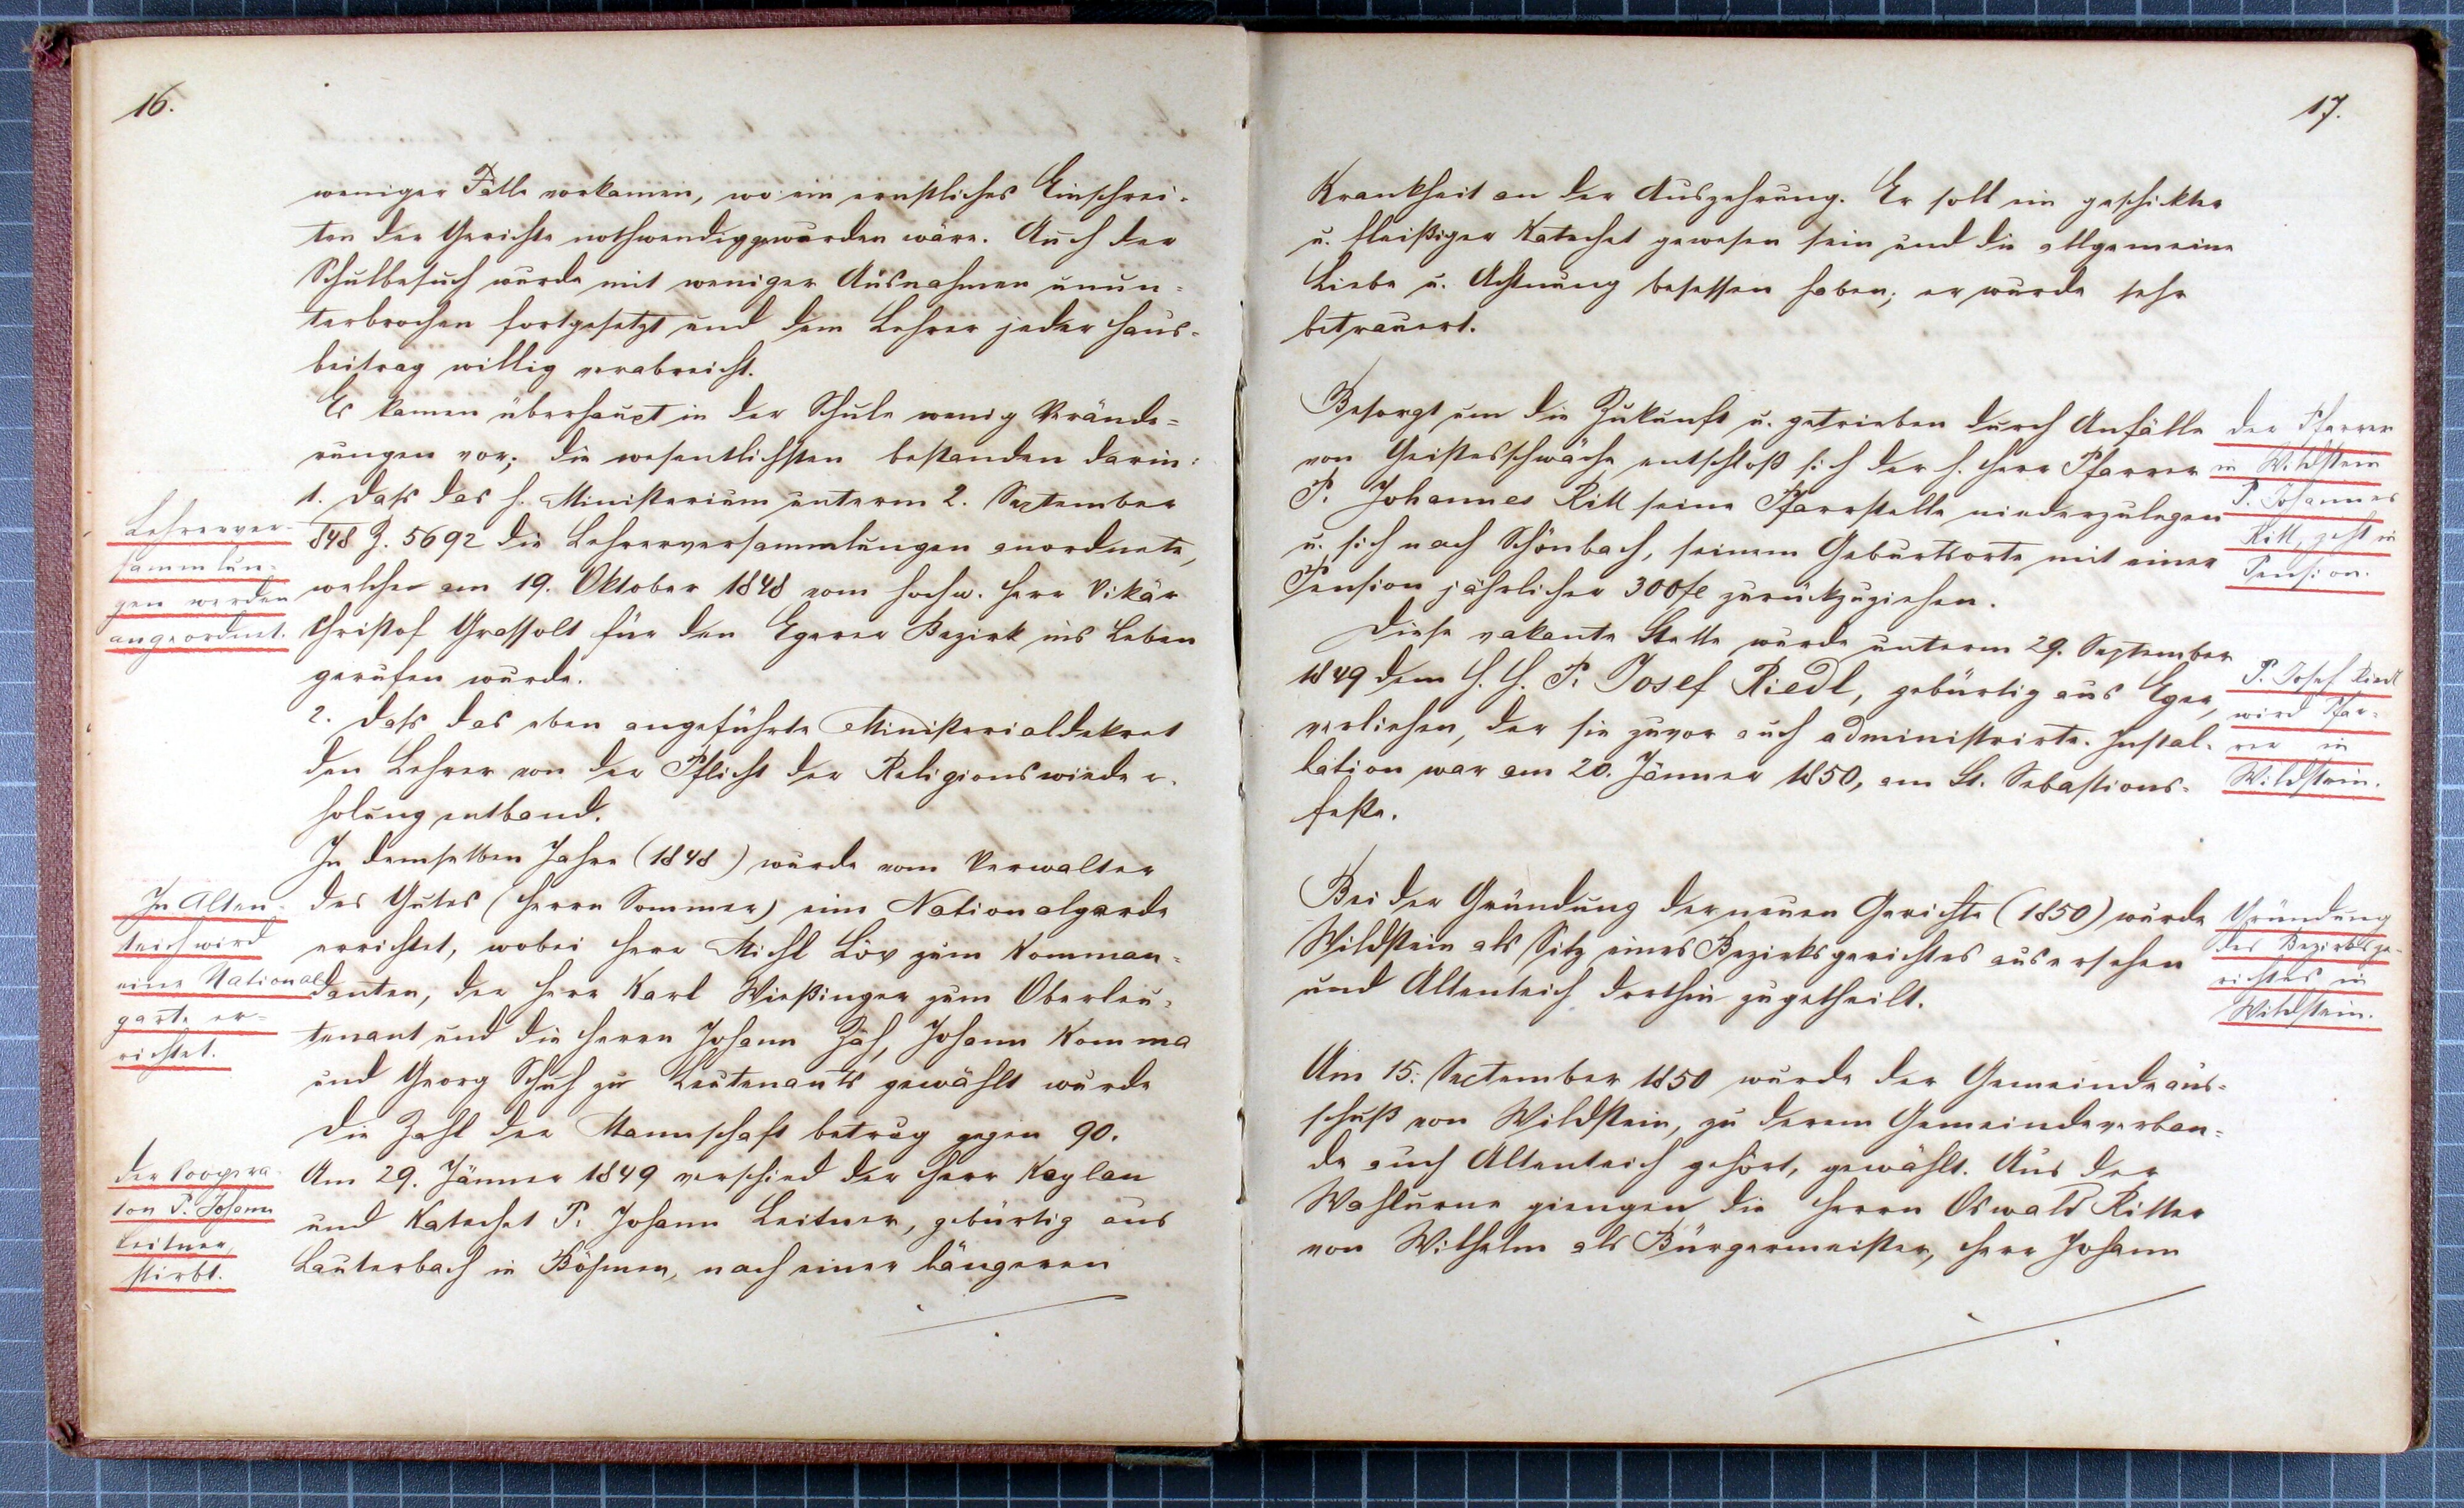 16.
weniger Fälle vorkamen, wo ein ernstliches Einschrei-
ten der Gerichte nothwendig geworden wäre. Auch der
Schulbesuch wurde mit weniger Ausnahmen unun-
terbrochen fortgesetzt und dem Lehrer jeder Haus-
beitrag willig verabreicht.
Es kamen überhaupt in der Schule wenig Verände-
rungen vor; die wesentlichsten bestanden darin:
1. daß das h. Ministerium unterm 2. September
848 Z. 5692 die Lehrerversammlungen anordnete,
welche am 19. Oktober 1848 vom hochw. Herr Vikär
Christof Grassolt für den Egerer Bezirk ins Leben
gerufen wurde.
2. daß das eben angeführte Ministerialdekret
den Lehrer von der Pflicht der Religionswieder-
holung entband.
In demselben Jahre (1848) wurde vom Verwalter
des Gutes (Herrn Sommer) eine Nationalgarde
errichtet, wobei Herr Michl Löv zum Komman-
danten, der Herr Karl Wießinger zum Oberleu-
tenant und die Herrn Johann Zäh, Johann Komma
und Georg Schuh zu Leutenants gewählt wurde
Die Zahl der Mannschaft betrug gegen 90.
Am 29. Jänner 1849 verschied der Herr Kaplan
und Katechet P. Johann Leitner, gebürtig aus
Lauterbach in Böhmen, nach einer längeren
Lehrerver-
sammlun-
gen werden
angeordnet.
In Alten-
teich wird
eine National
garte er-
richtet.
Der Coopera-
tor P. Johann
Leitner
stirbt.
17.
Krankheit an der Auszehrung. Er soll ein geschikter
u. fleißiger Katechet gewesen sein und die allgemeine
Liebe u. Achtung besessen haben; er wurde sehr
betrauert.
Besorgt um die Zukunft u. getrieben durch Anfälle
von Geistesschwäche entschloß sich der h. Herr Pfarrer
P. Johannes Ritt seine Pfarrstelle niederzulegen
u. sich nach Schönbach, seinem Geburtsorte mit einer
Pension jährlicher 300 fl zurückzuziehen.
Diese vakante Stelle wurde unterm 29. September
1849 dem H. H. P. Josef Riedl, gebürtig aus Eger,
verliehen, der sie zuvor auch administrirte. Instal-
lation war am 20. Jänner 1850, am St. Sebastions-
feste.
Bei der Gründung der neuen Gerichte (1850) wurde
Wildstein als Sitz eines Bezirksgerichtes ausersehen
und Altenteich dorthin zugetheilt.
Am 15. September 1850 wurde der Gemeindeaus-
schuß von Wildstein, zu derem Gemeindeverban-
de auch Altenteich gehört, gewählt. Aus der
Wahlurne giengen die Herrn Oswald Ritter
von Wilhelm als Bürgermeister, Herr Johann
Der Pfarrer
in Wildstein
P. Johannes
Ritt, geht in
Pension.
P. Josef Riedl
wird Pfar-
rer in
Wildstein.
Gründung
des Bezirksge-
richtes in
Wildstein.